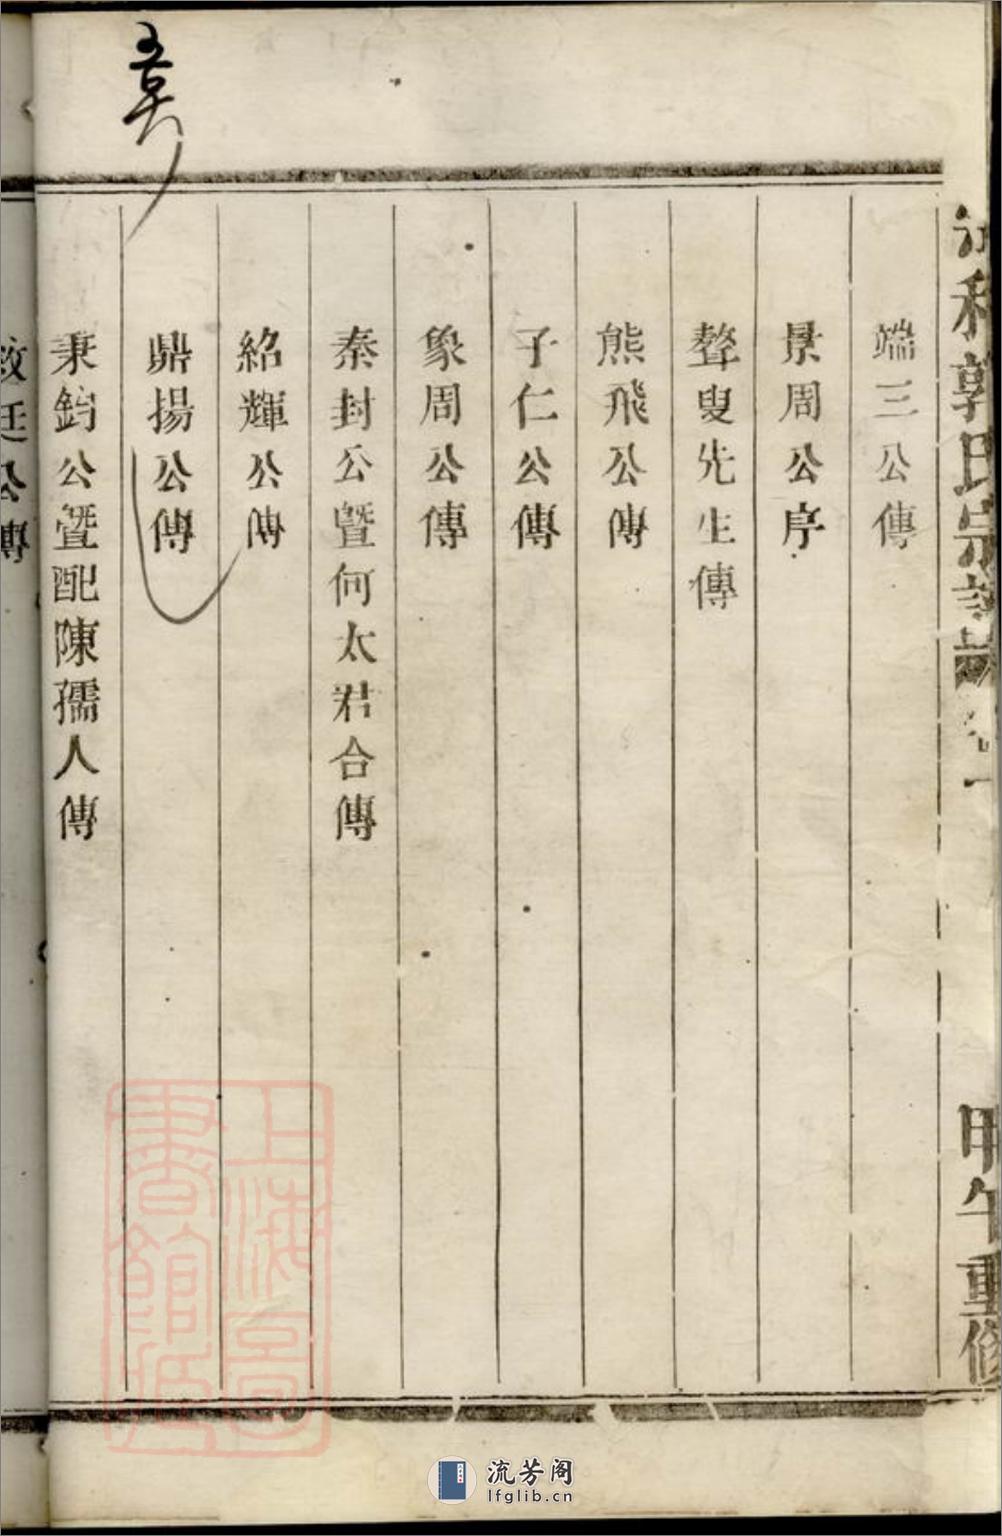 郭氏宗譜
甲午重修
端三公傳
景周公序
聱叟先生傳
熊飛公傳
子仁公傳
象周公傳
秦封公暨何太君合傳
紹輝公傳
鼎揚公傳
秉鈞公暨配陳孺人傳
廷公傳
上海圖書館藏
流芳阁
lfglib.cn